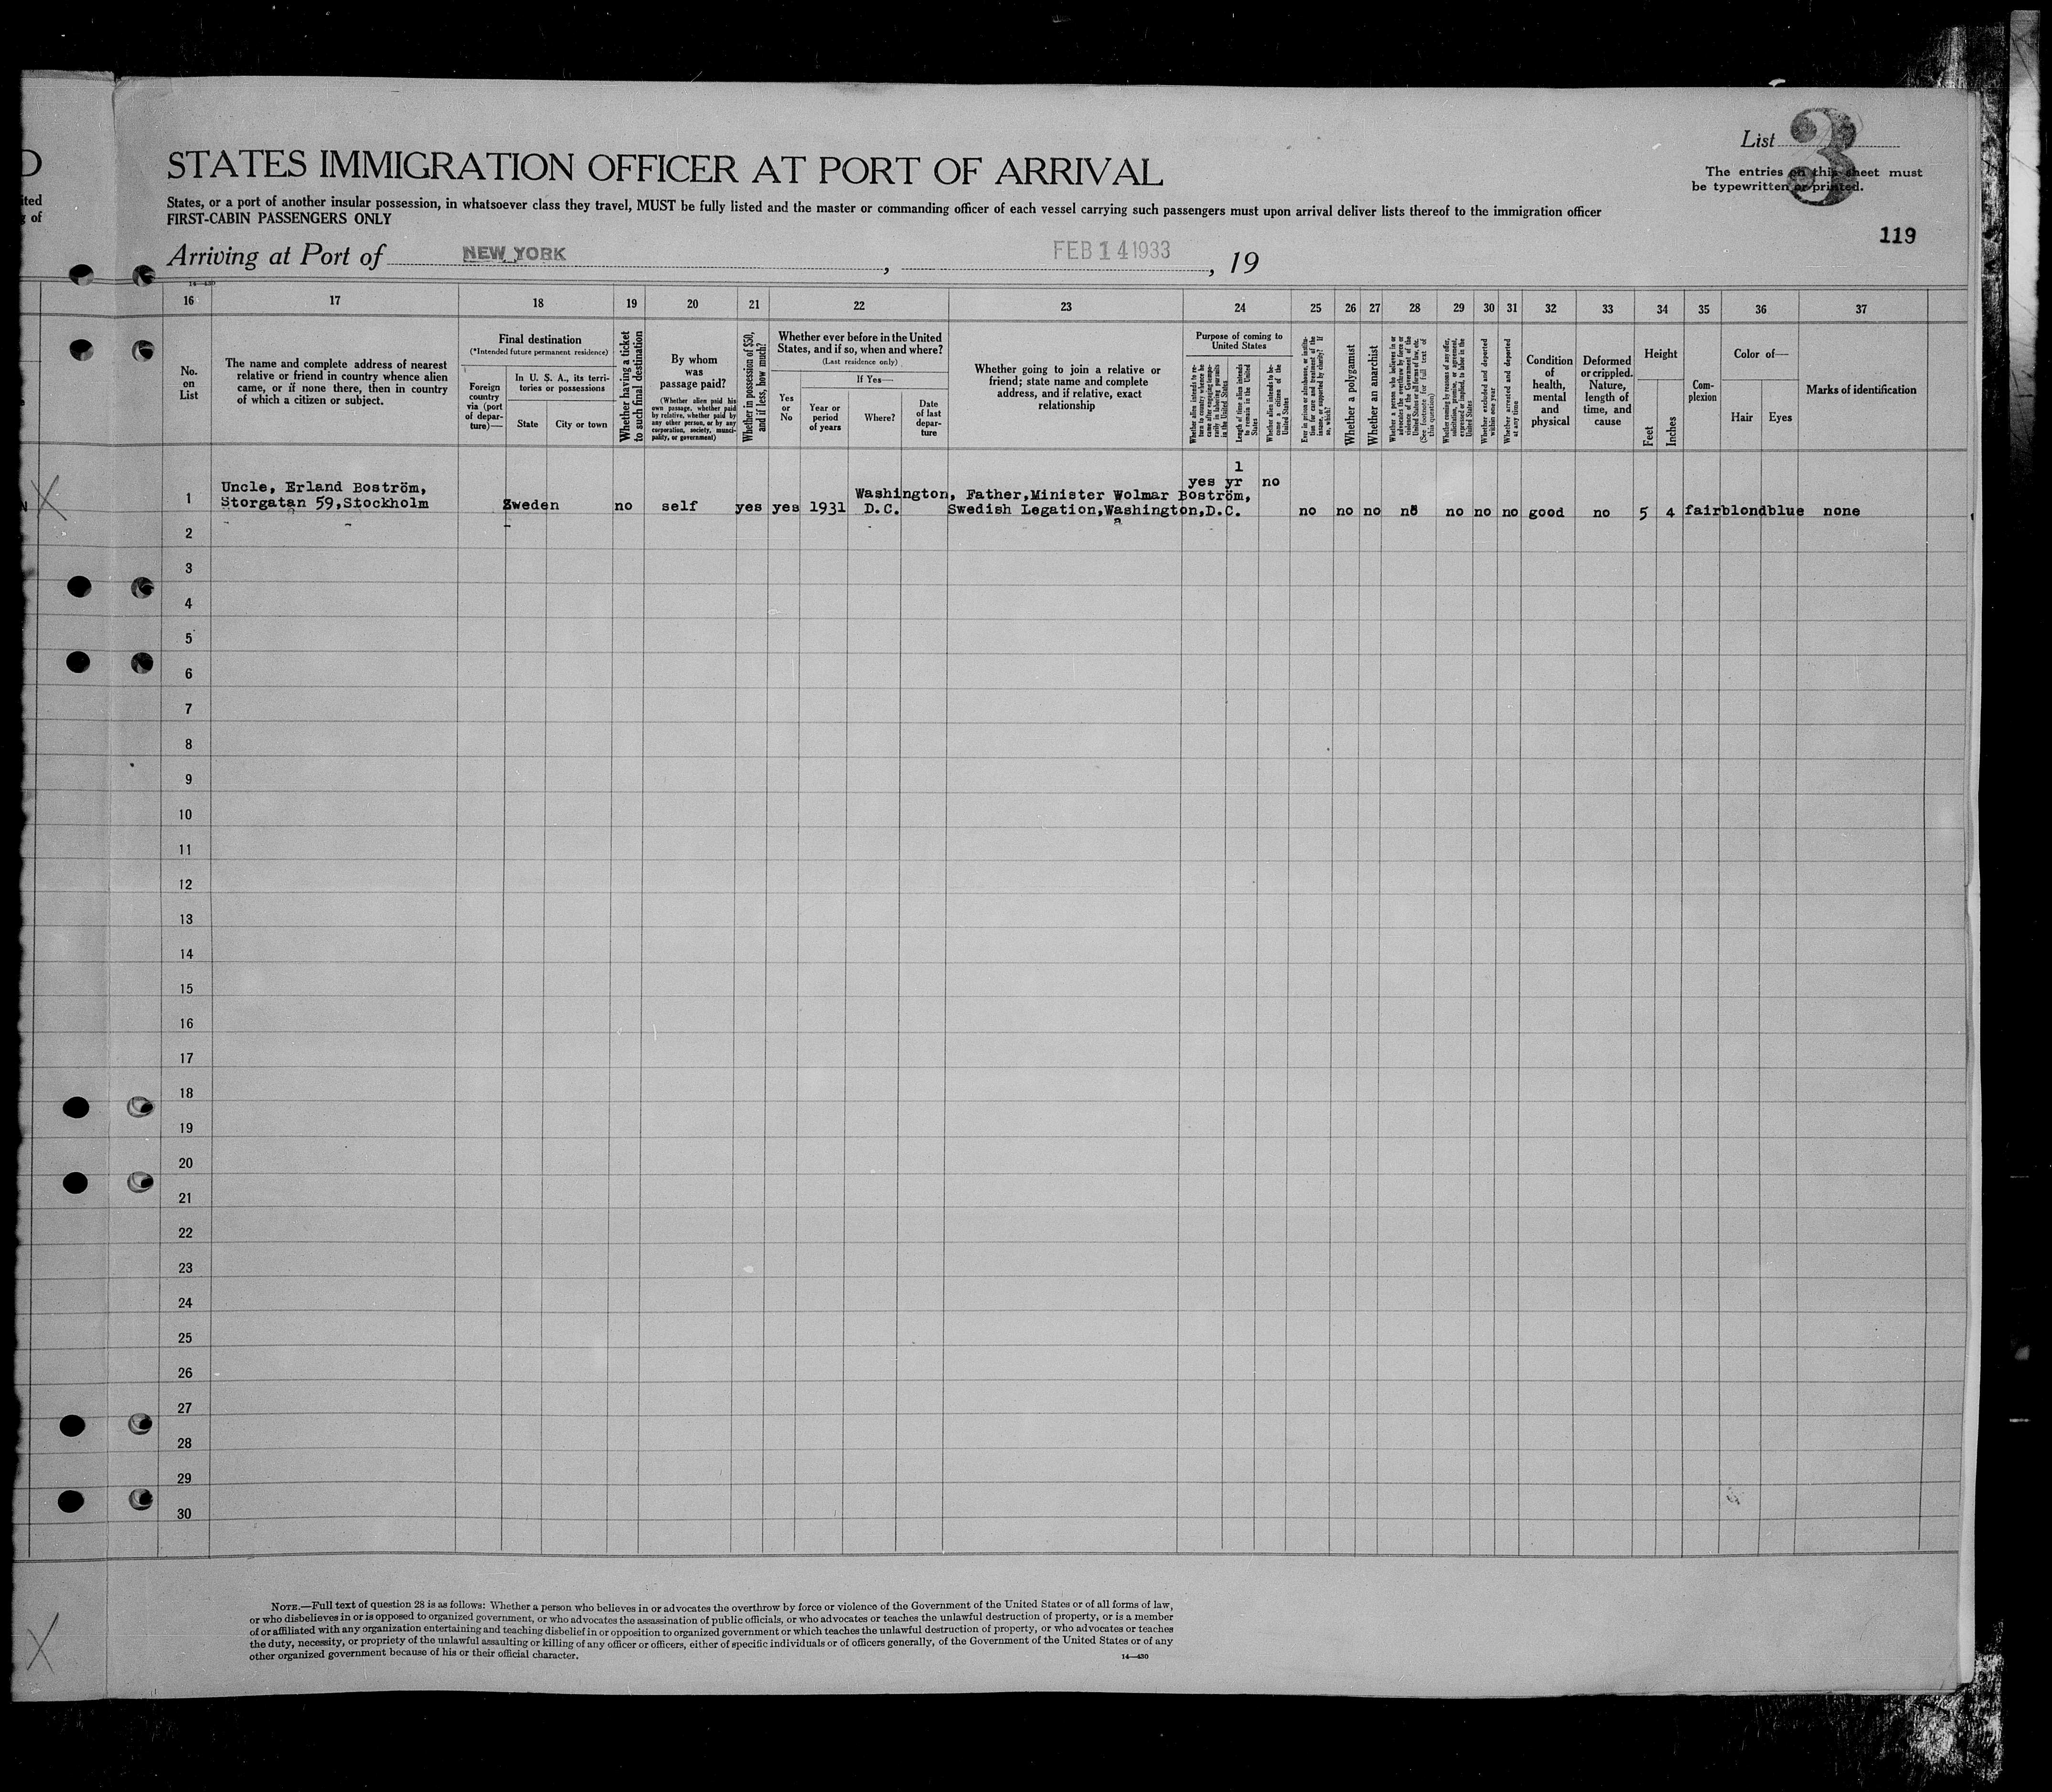 D
STATES IMMIGRATION OFFICER AT PORT OF ARRIVAL
List 3
The entries on this sheet must
be typewritten or printed.
ited
of
States, or a port of another insular possession, in whatsoever class they travel, MUST be fully listed and the master or commanding officer of each vessel carrying such passengers must upon arrival deliver lists thereof to the immigration officer
FIRST-CABIN PASSENGERS ONLY
119
Arriving at Port of NEW YORK, FEB 14 1933, 19
14—430
16 17 18 19 20 21 22 23 24 25 26 27 28 29 30 31 32 33 34 35 36 37
No.
on
List
The name and complete address of nearest
relative or friend in country whence alien
came, or if none there, then in country
of which a citizen or subject.
Final destination
(*Intended future permanent residence)
Foreign
country
via (port
of depar-
ture)—
In U. S. A., its terri-
tories or possessions
State
City or town
Whether having a ticket
to such final destination
By whom
was
passage paid?
(Whether alien paid his
own passage, whether paid
by relative, whether paid by
any other person, or by any
corporation, society, munici-
pality, or government)
Whether in possession of $50,
and if less, how much?
Whether ever before in the United
States, and if so, when and where?
(Last residence only)
If Yes—
Yes
or
No
Year or
period
of years
Where?
Date
of last
depar-
ture
Whether going to join a relative or
friend; state name and complete
address, and if relative, exact
relationship
Purpose of coming to
United States
Whether alien intends to re-
turn to country whence he
came after engaging tempo-
rarily in laboring pursuits
in the United States
Length of time alien intends
to remain in the United
States
Whether alien intends to be-
come a citizen of the
United States
Ever in prison or almshouse, or institu-
tion for care and treatment of the
insane, or supported by charity? If
so, which?
Whether a polygamist
Whether an anarchist
Whether a person who believes in or
advocates the overthrow by force or
violence of the Government of the
United States or all forms of law, etc.
(See footnote for full text of
this question)
Whether coming by reasons of any offer,
solicitation, promise, or agreement,
expressed or implied, to labor in the
United States
Whether excluded and deported
within one year
Whether arrested and deported
at any time
Condition
of
health,
mental
and
physical
Deformed
or crippled.
Nature,
length of
time, and
cause
Height
Feet
Inches
Com-
plexion
Color of—
Hair
Eyes
Marks of identification
1
yes yr no
Uncle, Erland Boström,
Washington, Father,Minister Wolmar Boström,
1 Storgatan 59,Stockholm Sweden no self yes yes 1931 D.C. Swedish Legation,Washington,D.C. no no no no no no no good no 5 4 fair blond blue none
2
3
4
5
6
7
8
9
10
11
12
13
14
15
16
17
18
19
20
21
22
23
24
25
26
27
28
29
30
NOTE.—Full text of question 28 is as follows: Whether a person who believes in or advocates the overthrow by force or violence of the Government of the United States or of all forms of law,
or who disbelieves in or is opposed to organized government, or who advocates the assassination of public officials, or who advocates or teaches the unlawful destruction of property, or is a member
of or affiliated with any organization entertaining and teaching disbelief in or opposition to organized government or which teaches the unlawful destruction of property, or who advocates or teaches
the duty, necessity, or propriety of the unlawful assaulting or killing of any officer or officers, either of specific individuals or of officers generally, of the Government of the United States or of any
other organized government because of his or their official character.
14—430